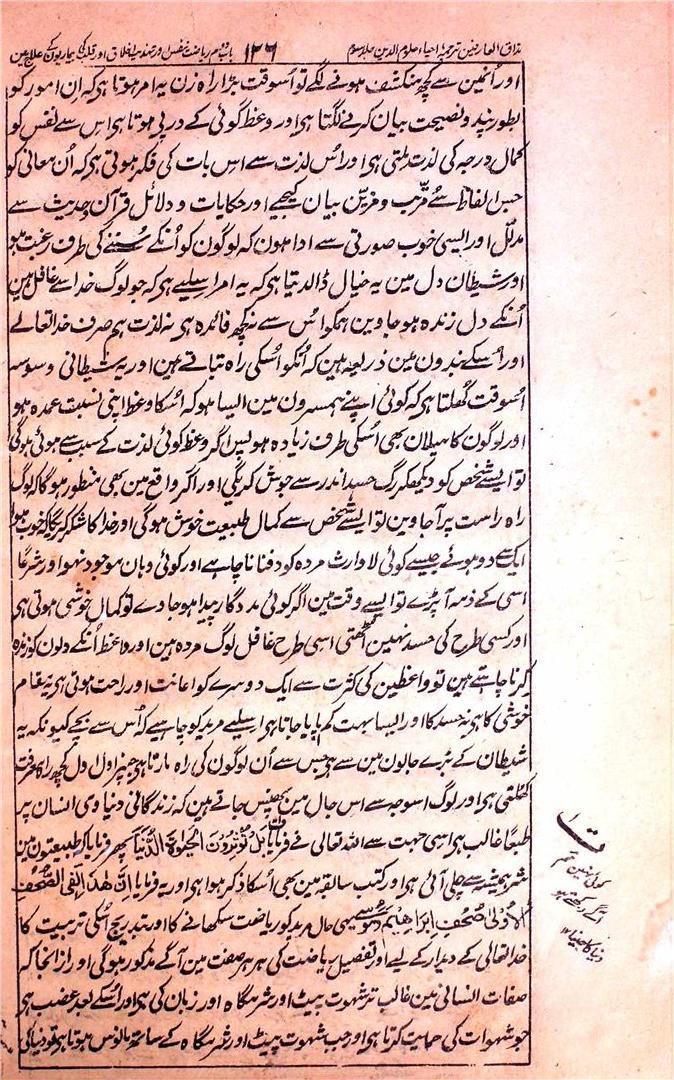 مذاق العارفین ترجمۂ احیاء علوم الدین جلد سوم ۱۲۶ باب دوم ریاضت نفس اور تہذیب اخلاق اور قلب کی بیماریون کے علاج مین
اور اُنمین سے کچھ منکشف ہونے لگے تو اُسوقت بڑا راہ زن یہ امر ہوتا ہی کہ ان امور کو
بطور پند و نصیحت بیان کرنے لگتا ہی اور وعظ گوئی کے درپی ہوتا ہی اس سے نفس کو
کمال درجہ کی لذت ملتی ہی اور اُس لذت سے اس بات کی فکر ہوتی ہی کہ اُن معانی کو
حسن الفاظ سے مرتب و مزین بیان کیجیے اور حکایات و دلائل قرآن و حدیث سے
مدلل اور ایسی خوب صورتی سے ادا ہون کہ لوگون کو اُنکے سُننے کی طرف رغبت ہو
اور شیطان دل مین یہ خیال ڈالدیتا ہی کہ یہ امر اسلیے ہی کہ جو لوگ خدا سے غافل ہین
اُنکے دل زندہ ہو جاوین ہمکو اُس سے نہ کچھ فائدہ ہی نہ لذت ہم صرف خدا تعالے
اور اُسکے بندون مین ذریعہ ہین کہ اُنکو اُسکی راہ بتاتے ہین اور یہ شیطانی وسوسہ
اُسوقت کُھلتا ہی کہ کوئی اپنے ہمسرون مین ایسا ہو کہ اُسکا وعظ اپنی نسبت عمدہ ہو
اور لوگون کا میلان بھی اُسکی طرف زیادہ ہو پس اگر وعظ گوئی لذت کے سبب سے ہوئی ہوگی
تو ایسے شخص کو دیکھکر رگ حسد اندر سے جوش کریگی اور اگر واقع مین بھی منظور ہوگا کہ لوگ
راہ راست پر آجاوین تو ایسے شخص سے کمال طبیعت خوش ہوگی اور خدا کا شکر کریگا کہ خوب ہوا
ایک سے دو ہوئے جیسے کوئی لاوارث مردہ کو دفنانا چاہے اور کوئی وہان موجود نہو اور شرعًا
اسی کے ذمہ آپڑے تو ایسے وقت مین اگر کوئی مددگار پیدا ہو جاوے تو کمال خوشی ہوتی ہی
اور کسی طرح کی حسد نہین اُٹھتی اسی طرح غافل لوگ مردہ ہین اور واعظ اُنکے دلون کو زندہ
کرنا چاہتے ہین تو واعظین کی کثرت سے ایک دوسرے کو اعانت اور راحت ہوتی ہی یہ مقام
خوشی کا ہی نہ حسد کا اور ایسا بہت کم پایا جاتا ہی اسلیے مرید کو چاہیے کہ اُس سے بچے کیونکہ یہ
شیطان کے بڑے جالون مین سے ہی جس سے اُن لوگون کی راہ مارتا ہی جنپر اول اول کچھ راہ معرفت
کھلتی ہی اور لوگ اسوجہ سے اس جال مین پھنس جاتے ہین کہ زندگانی دنیاوی انسان پر
طبعًا غالب ہی اسی جہت سے اللہ تعالی نے فرمایا بَلْ تُؤْثِرُونَ الْحَیٰوةَ الدُّنْیَا پھر فرمایا کہ طبیعتون مین
شر ہمیشہ سے چلی آئی ہی اور کتب سابقہ مین بھی اُسکا ذکر ہوا ہی اور یہ فرمایا اِنَّ هٰذَا لَفِی الصُّحُفِ
الْاُوْلٰی صُحُفِ اِبْرَاهِیْمَ وَ مُوْسٰی یہی حال مرید کو ریاضت سکھانے کا اور بتدریج اُسکی تربیت کا
خدا تعالی کے دیدار کے لیے اور تفصیل ریاضت کی ہر ہر صفت مین آگے مذکور ہوگی اور ازانجا کہ
صفات انسانی مین غالب تر شہوت پیٹ اور شرمگاہ اور زبان کی ہی اور اُسکے بعد غضب ہی
جو شہوات کی حمایت کرتا ہی اور جب شہوت پیٹ اور شرمگاہ کے ساتھ مانوس ہوتا ہی تو دنیا کی
ف ۱